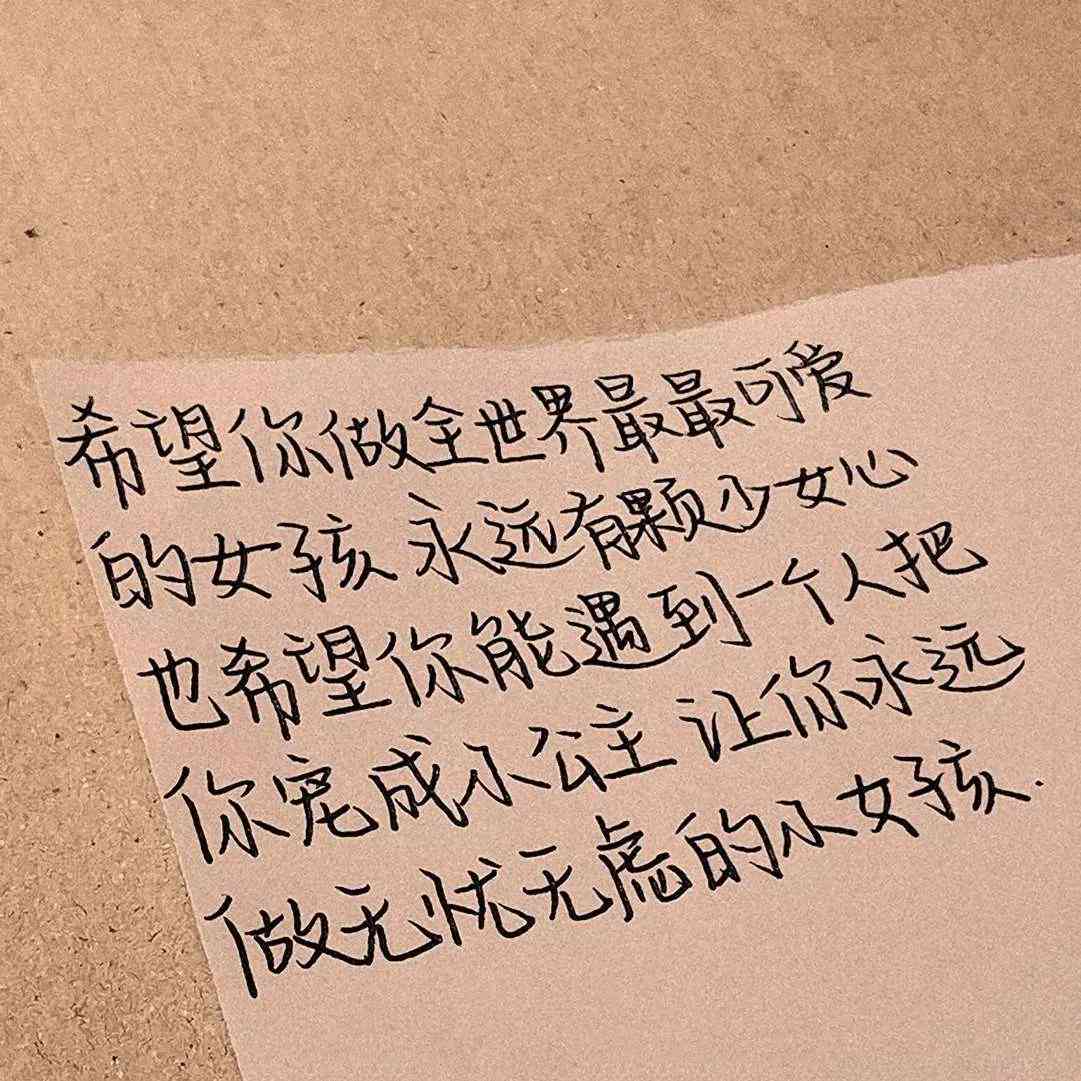 希望你做全世界最最可爱
的女孩 永远有颗少女心
也希望你能遇到一个人把
你宠成小公主 让你永远
做无忧无虑的小女孩.